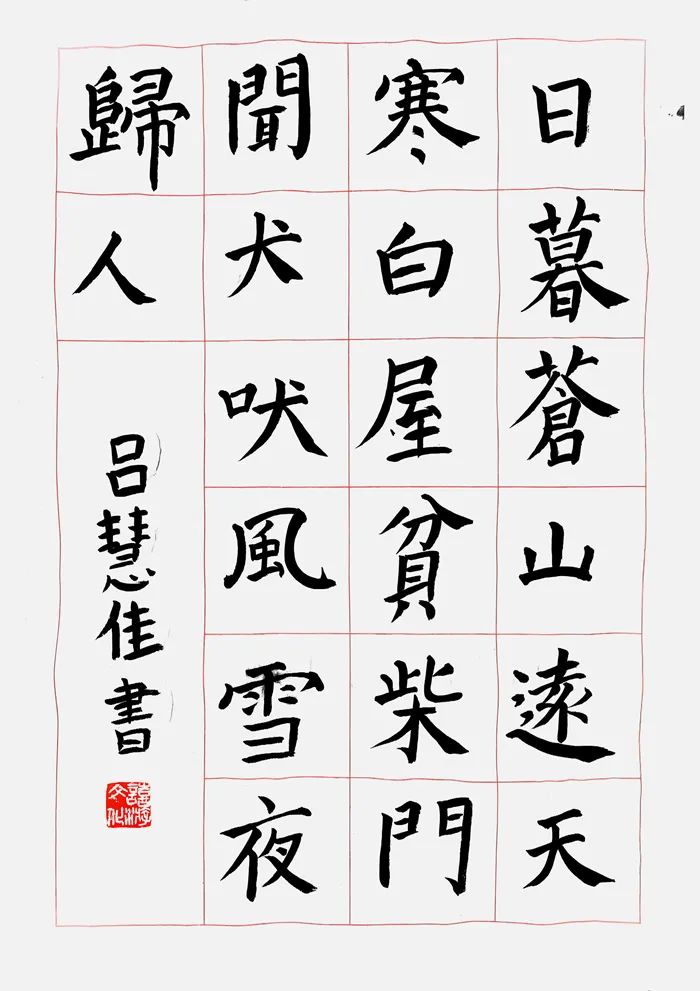 日暮蒼山遠天
寒白屋貧柴門
聞犬吠風雪夜
歸人
呂慧佳書